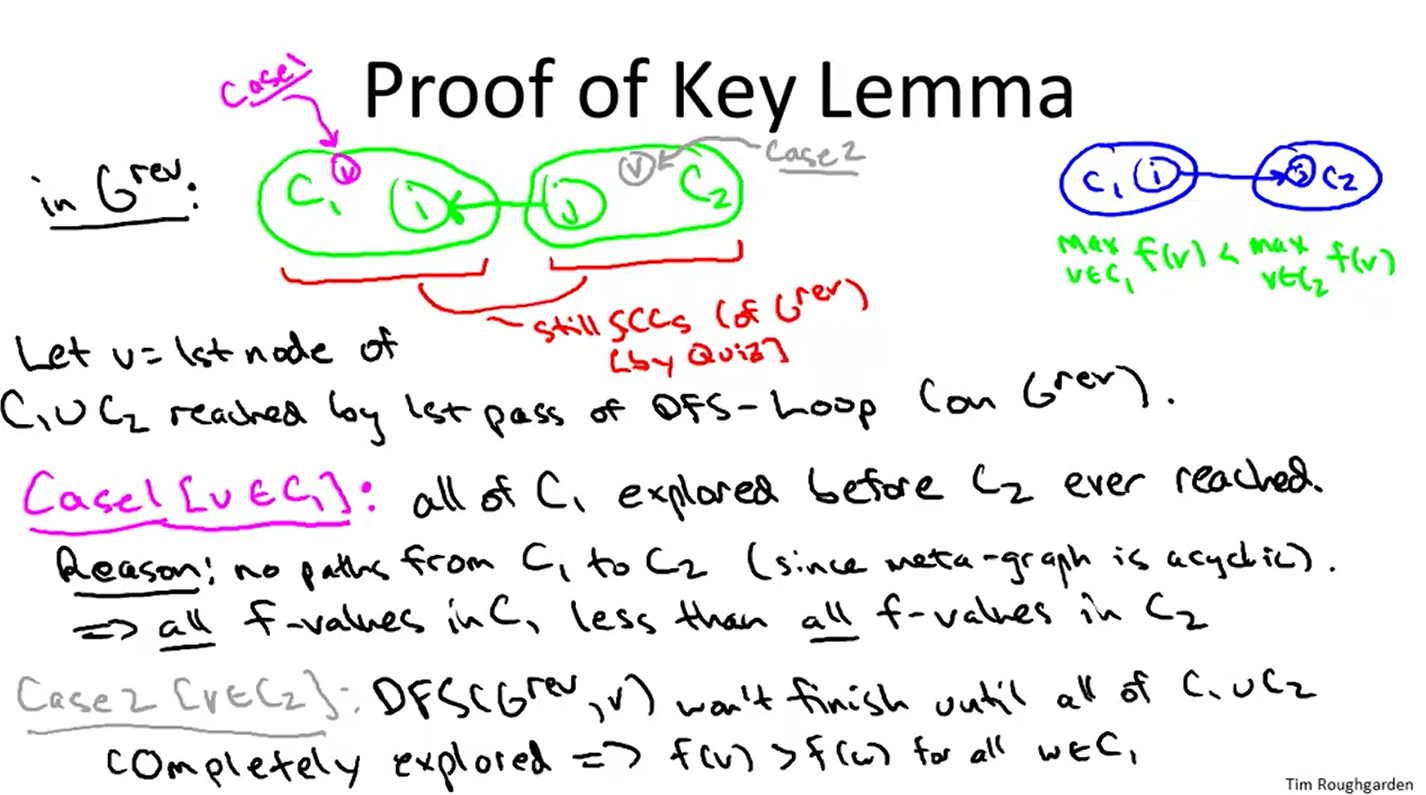 Proof of Key Lemma
Case 1
in G^rev:
C₁ i v
j v C₂
Case 2
C₁ i j C₂
max v∈C₁ f(v) < max v∈C₂ f(v)
still SCCs (of G^rev)
[by Quiz]
Let v = 1st node of
C₁∪C₂ reached by 1st pass of DFS-Loop (on G^rev).
Case 1 [v∈C₁]: all of C₁ explored before C₂ ever reached.
Reason: no paths from C₁ to C₂ (since meta-graph is acyclic).
=> all f-values in C₁ less than all f-values in C₂
Case 2 [v∈C₂]: DFS(G^rev, v) won't finish until all of C₁∪C₂
completely explored => f(v) > f(w) for all w∈C₁
Tim Roughgarden